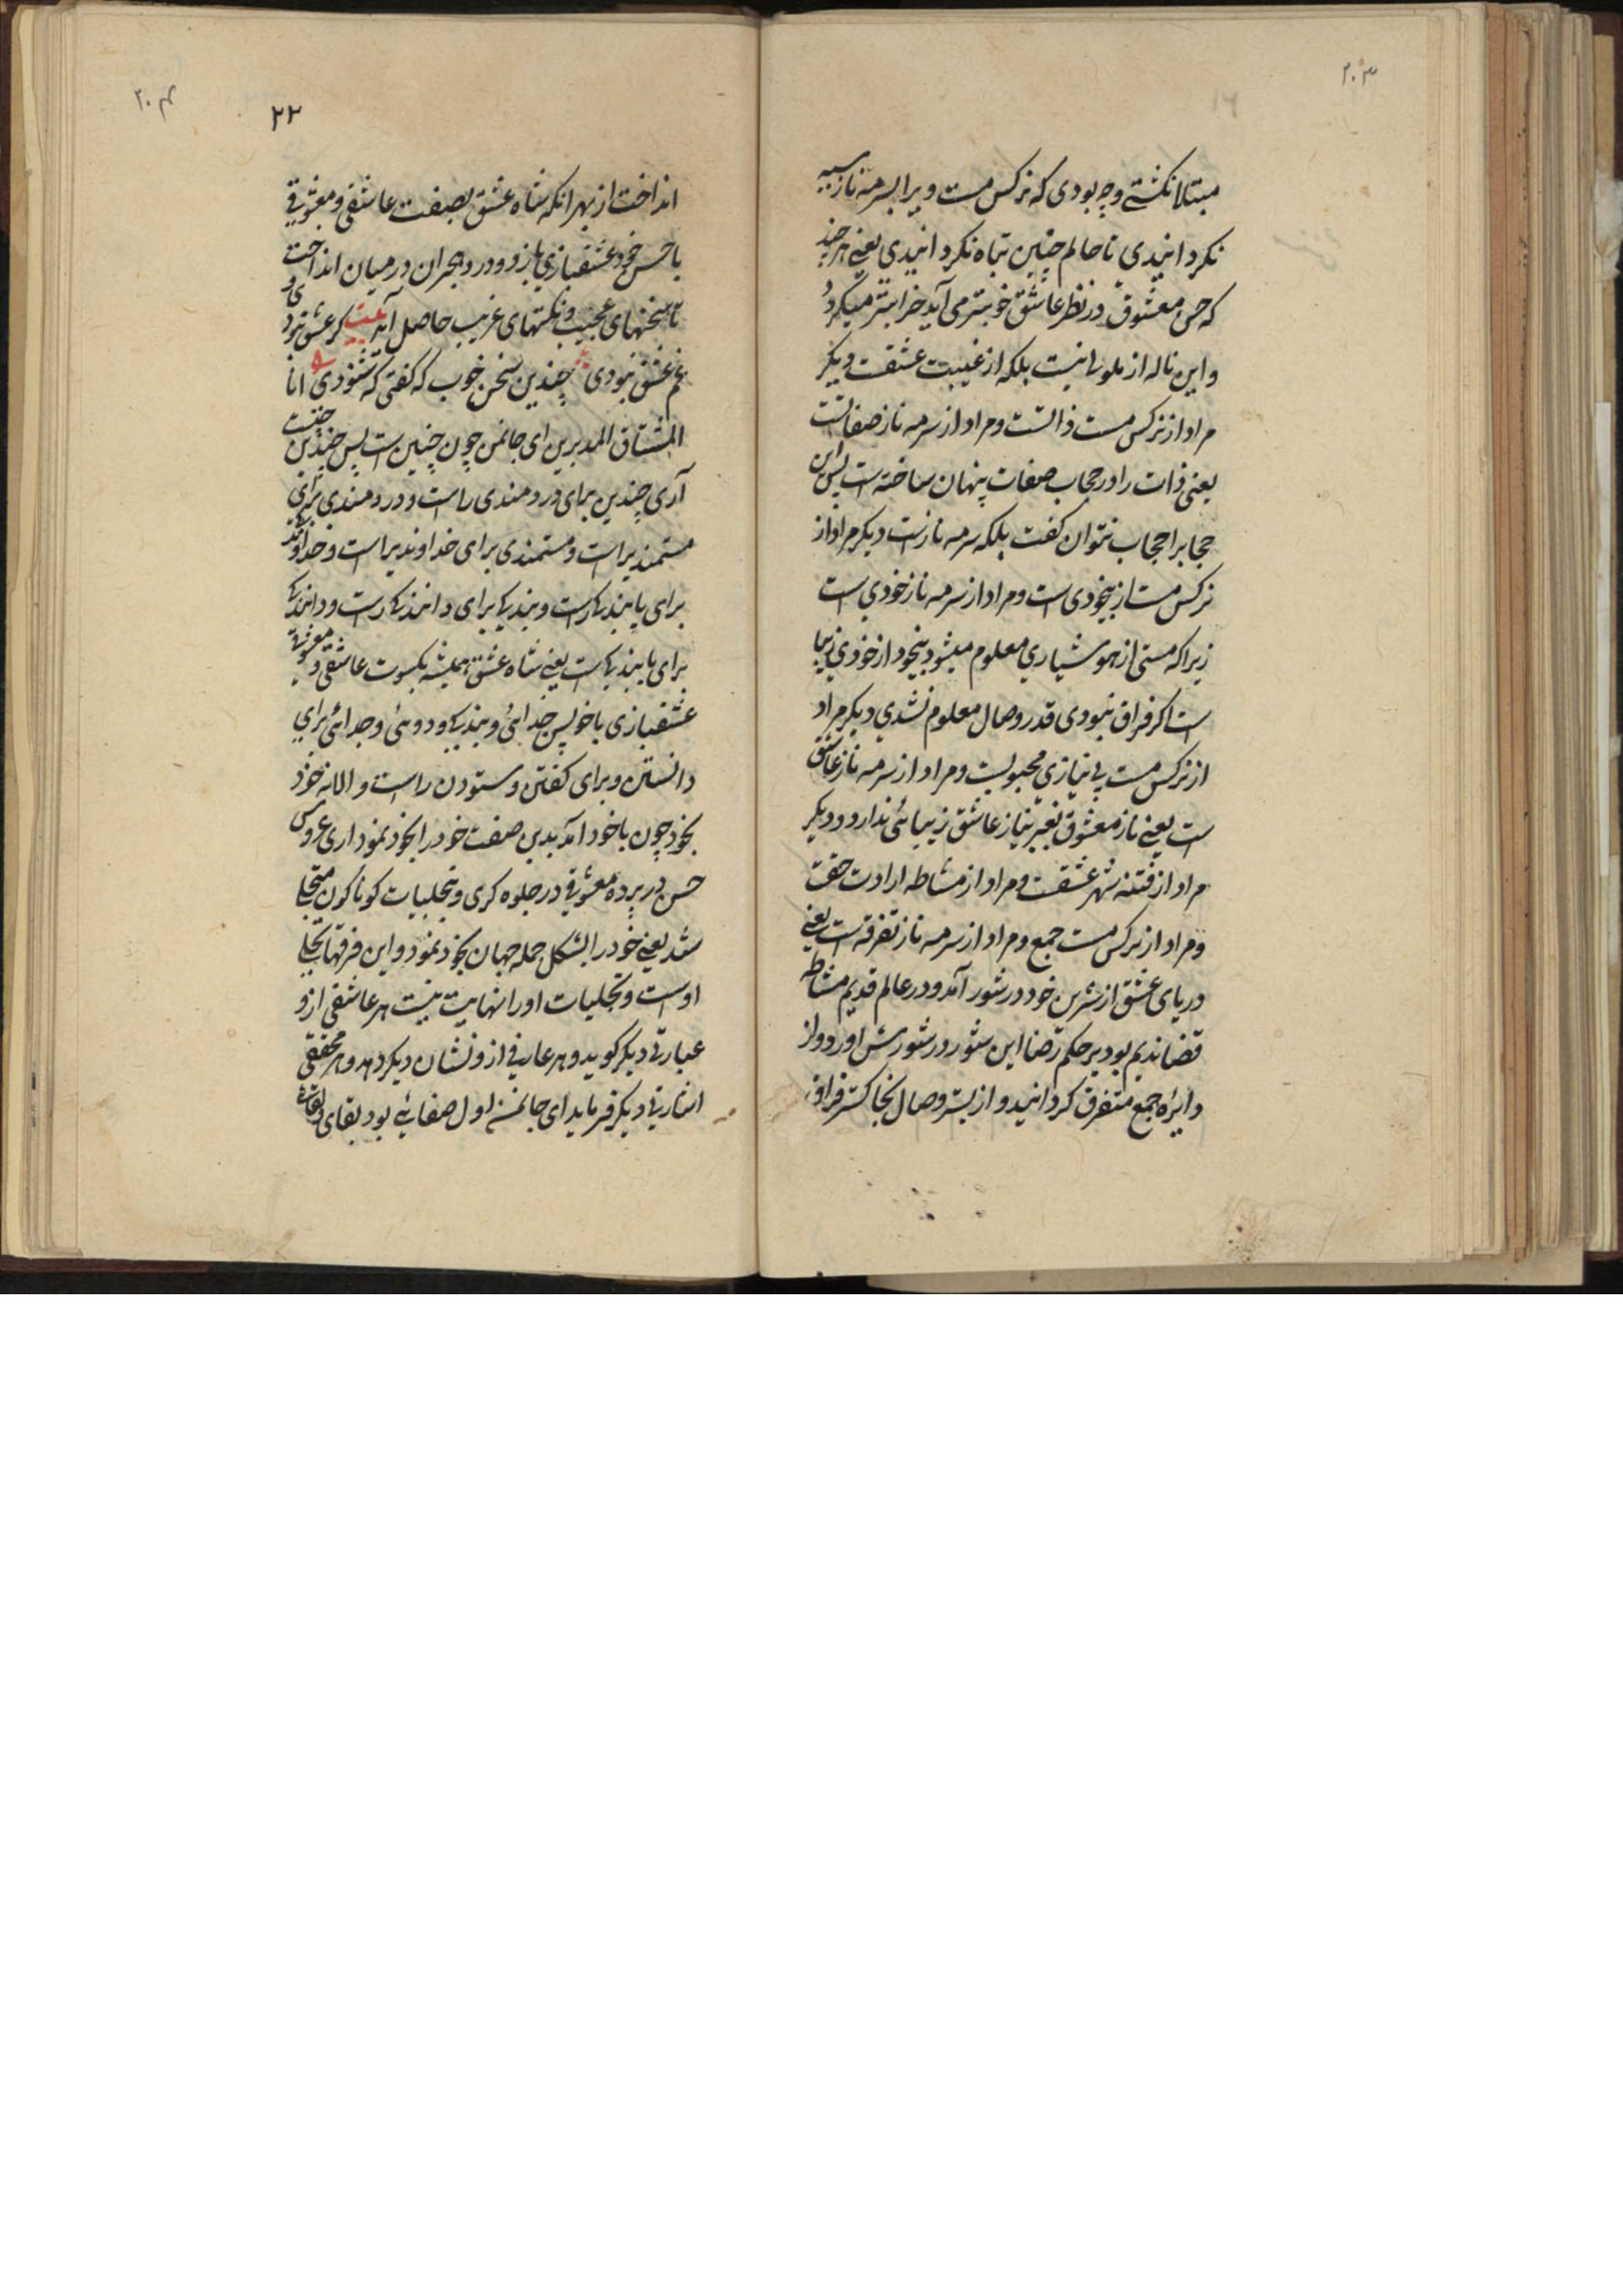 ۲۰۳
مبتلا نکشتی و چه بودی که نرکس مست ویرا بسرمه ناز سیه
نکردانیدی تا حالم چنین تباه نکردانیدی یعنی هر چند
که حسن معشوق در نظر عاشق خوبتر می آید خرابتر میکردد
و این ناله از ملولی نیست بلکه از غیبت عشقست دیکر
مراد از نرکس مست ذاتست و مراد از سرمه ناز صفاتست
یعنی ذات را در حجاب صفات پنهان ساخته است پس این
حجابرا حجاب نتوان کفت بلکه سرمه نازست دیکر مراد از
نرکس مست از بیخودی است و مراد از سرمه ناز خودی است
زیراکه مستی از هوشیاری معلوم میشود بیخود از خودی زیبا
است اکر فراق نبودی قدر وصال معلوم نشدی دیکر مراد
از نرکس مست بی نیازی محبوبست و مراد از سرمه ناز عاشق
است یعنی ناز معشوق بغیر نیاز عاشق زیبائی ندارد و دیکر
مراد از فتنه شهر عشقست و مراد از مشاطه ارادت حقست
و مراد از نرکس مست جمع و مراد از سرمه ناز تفرقه است یعنی
دریای عشق از شرین خود در شور آمد و در عالم قدیم مشاطه
قضا ندیم بود بر حکم قضا این شور در شورش آورد و از
دایره جمع متفرق کردانید و از بستر وصال بخاکستر فراق
۲۰۴
۲۲
انداخت از بهر انکه شاه عشق بصفت عاشقی و معشوقی
با حسن خود عشقبازی بازد و درد و هجران در میان انداخت
تا سخنهای عجیب و نکتهای غریب حاصل آید بیت کر عشق نبودی و
غم عشق نبودی چندین سخن خوب که کفتی که شنودی انا
المشتاق المدبرین ای جانمن چون چنین است پس چندین چیست
آری چندین برای دردمندی راست و دردمندی برای
مستمندیراست و مستمندی برای خداوندیراست و خداوندی
برای پابندیکارست و بندیکی برای دانندیکارست و دانندیکی
برای یابندیکیست یعنی شاه عشق همیشه بکسوت عاشقی و معشوقی
عشقبازی با خویش خدائی و بندیکی و دوئی و جدائی برای
دانستن و برای کفتن و ستودن راست و الا نه خود
بخود چون با خود آمد بدین صفت خود را بخود نمودار ای عروس
حسن در پرده معشوقی در جلوه کری و بتجلیات کوناکون متجلی
شد یعنی خود را بشکل جمله جهان بخود نمود و این فرقها تجلی
اوست و تجلیات او را نهایت نیست هر عاشقی ازو
عبارتی دیکر کوید و هر عارفی ازو نشان دیکر دهد و هر محققی
اشارتی دیکر فرماید ای جانمن اول صفایی بود بقای